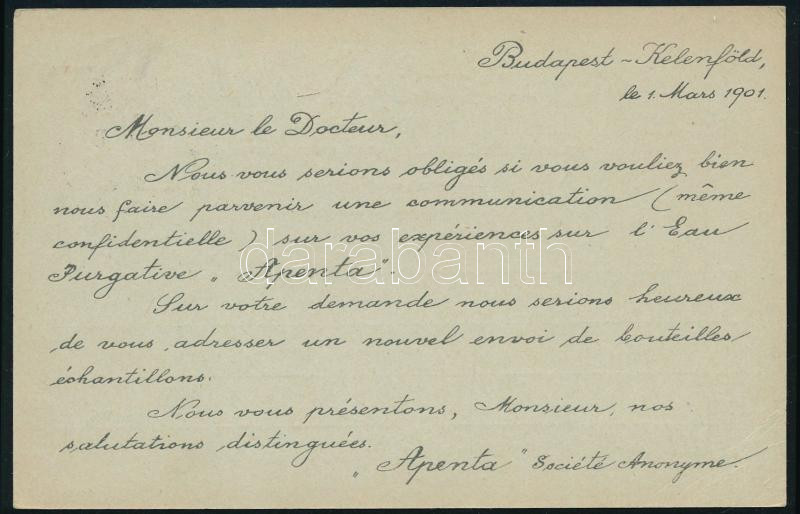 Budapest - Kelenföld,
le 1. Mars 1901.
Monsieur le Docteur,
Nous vous serions obligés si vous vouliez bien
nous faire parvenir une communication (même
confidentielle) sur vos expériences sur l'Eau
Purgative „Apenta".
darabanth
Sur votre demande nous serions heureux
de vous adresser un nouvel envoi de bouteilles
échantillons.
Nous vous présentons, Monsieur, nos
salutations distinguées.
„Apenta" Société Anonyme.